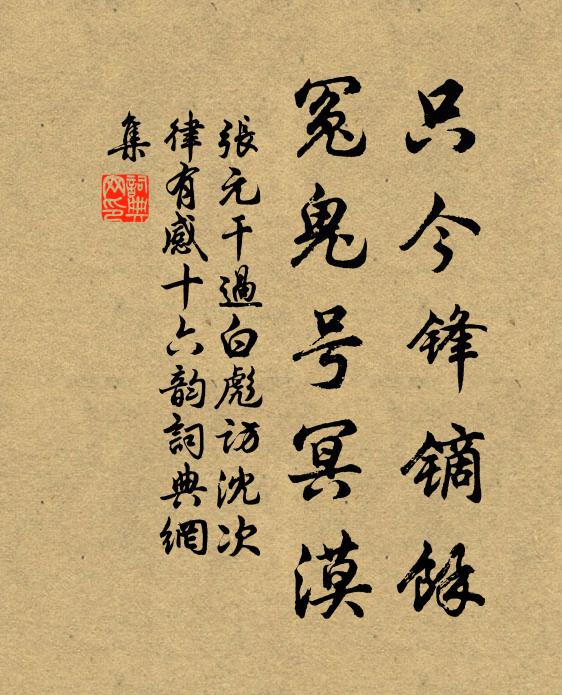 只今锋镝餘
冤鬼号冥漠
張元干過白彪訪沈次
律有感十六韵詞典網
集
詞典网印